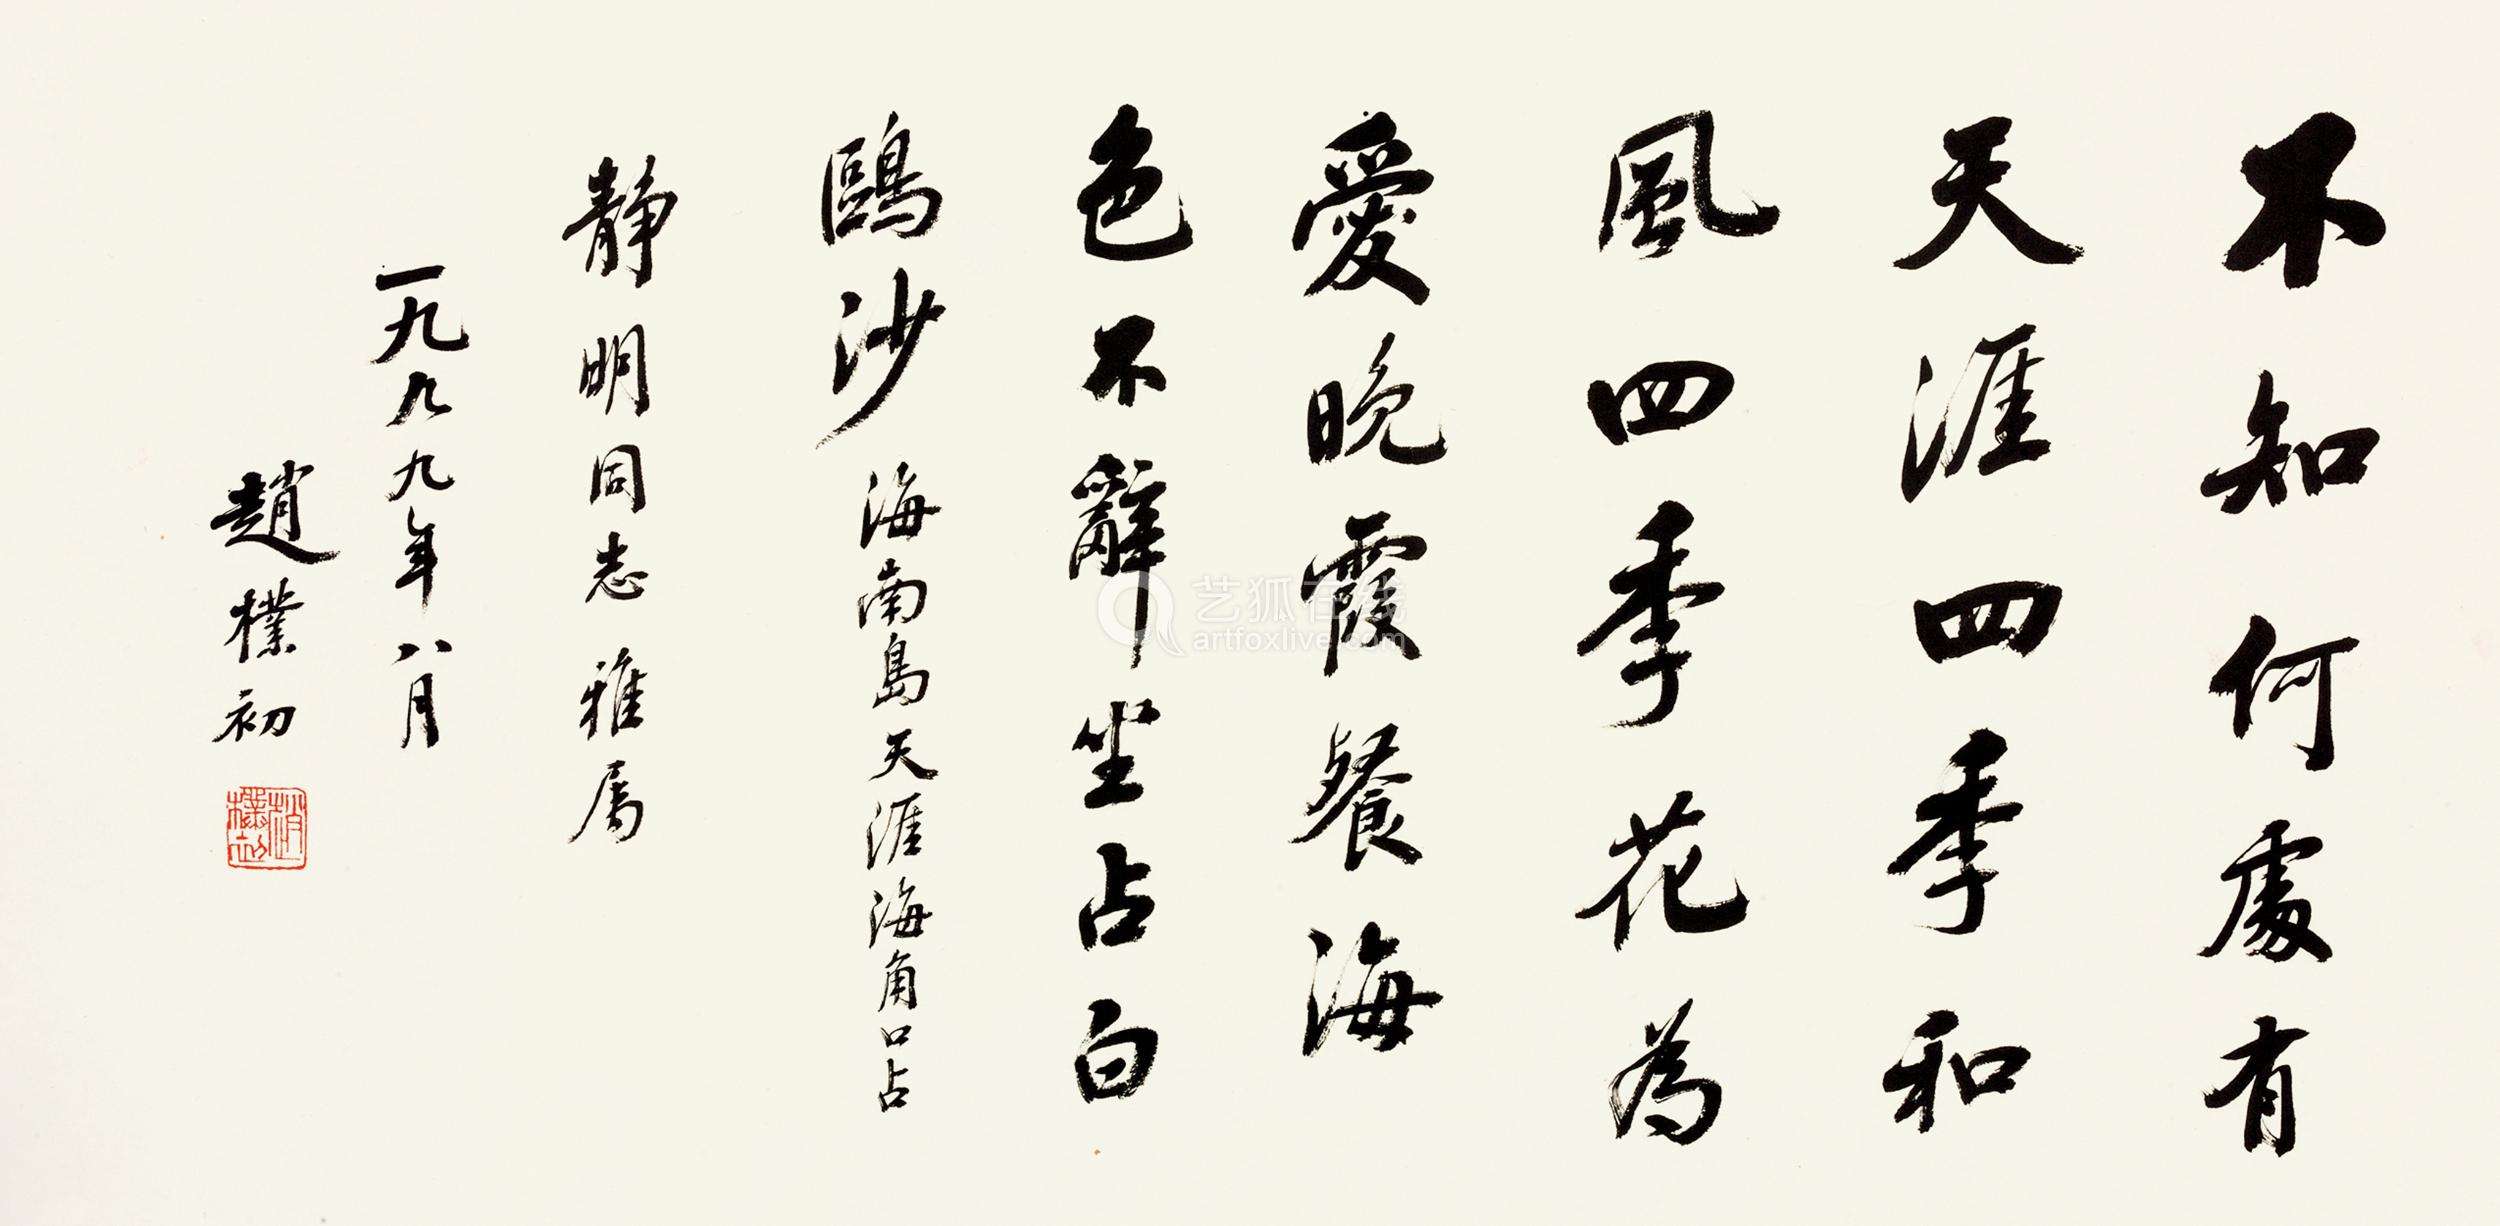 不知何處有
天涯四季和
風四季花為
愛晚霞餐海
色不辭坐占白
鷗沙 海南島天涯海角口占
靜明同志雅屬
一九九九年八月
趙樸初
趙樸初
艺狐在线
artfoxlive.com